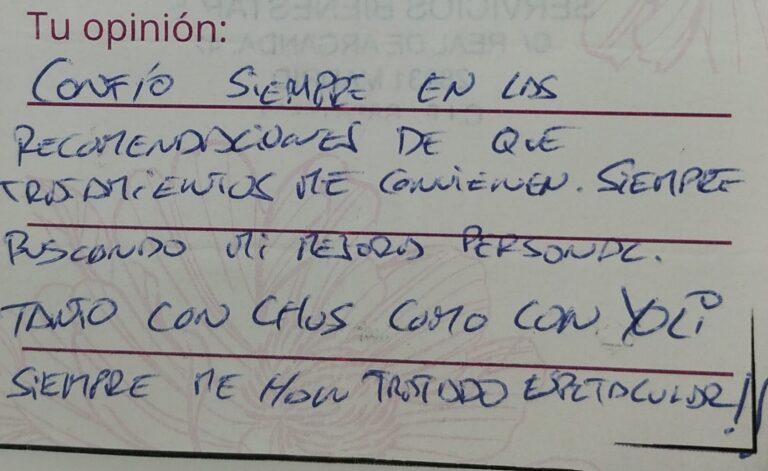 Tu opinión:
CONFÍO SIEMPRE EN LAS
RECOMENDACIONES DE QUE
TRATAMIENTOS ME CONVIENEN. SIEMPRE
BUSCANDO MI MEJORA PERSONAL.
TANTO CON CHUS COMO CON YOLI
SIEMPRE ME HAN TRATADO ESPETACULAR!!